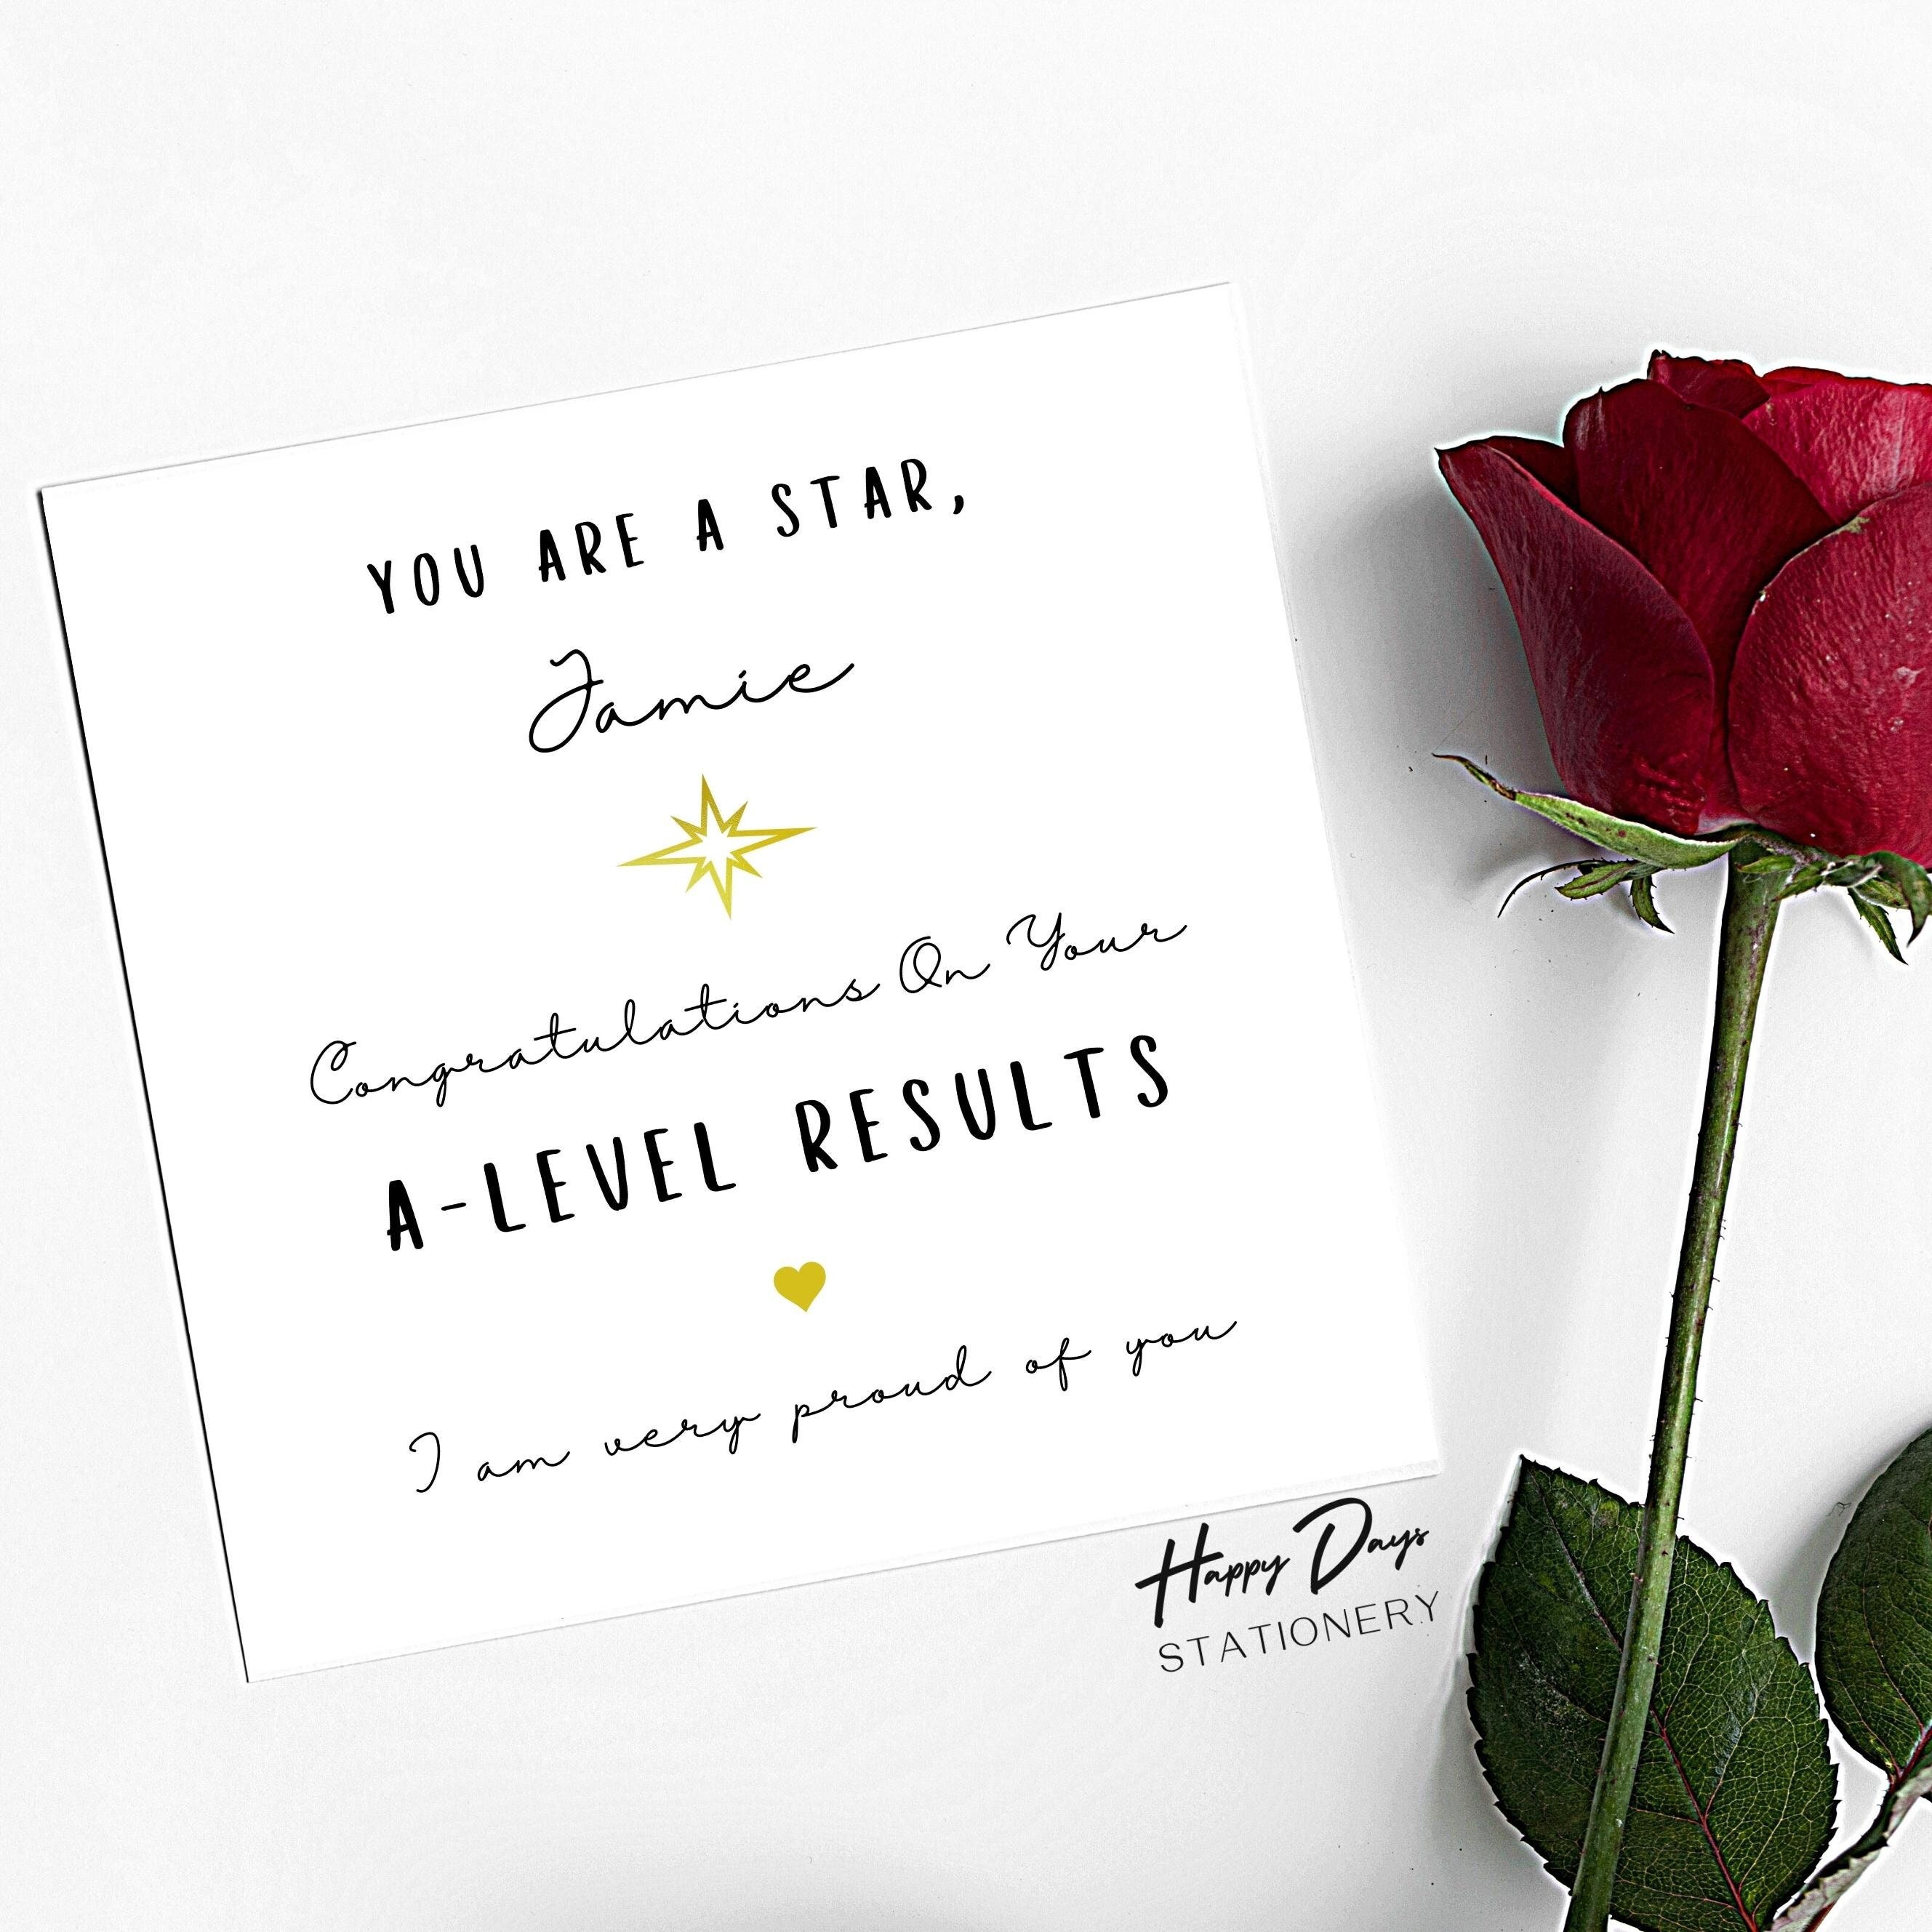 YOU ARE A STAR,
Jamie
Congratulations On Your
A-LEVEL RESULTS
I am very proud of you
Happy Days
STATIONERY